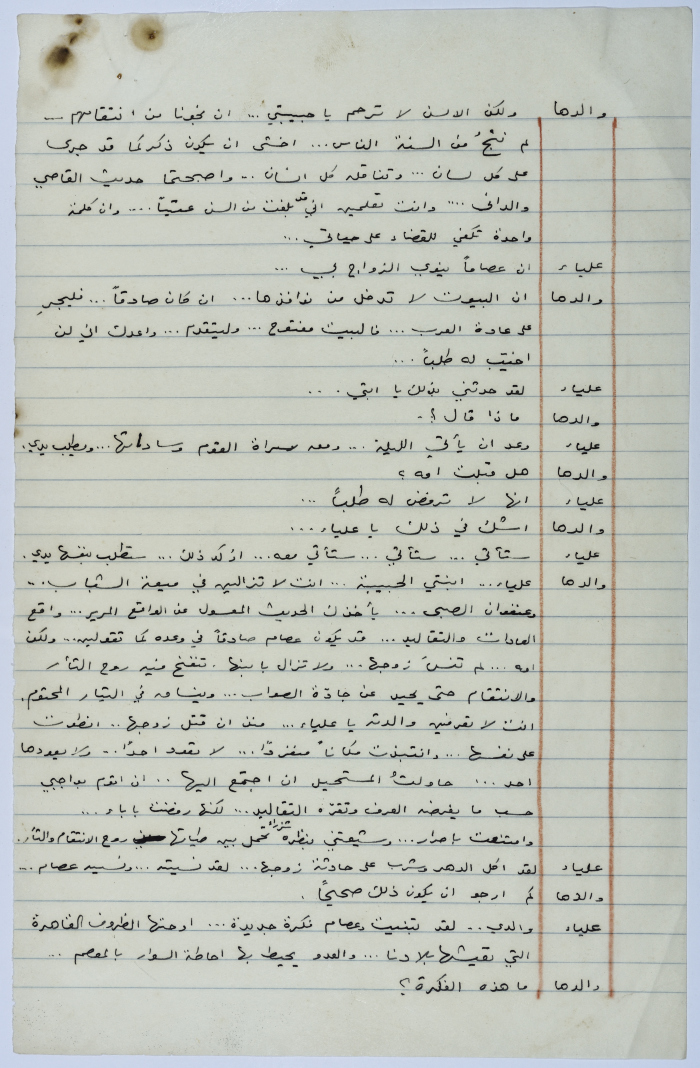 والدها ولكن الالسن لا ترحم يا حبيبتي ... ان نجونا من انتقامهم ...
لم ننجُ من السنة الناس ... اخشى ان يكون ذكركما قد جرى
على كل لسان ... وتناقله كل انسان .. واصبحتما حديث القاصي
والداني .... وانت تعلمين اني قد بلغت من السن عتيّاً .... وان كلمة
واحدة تكفي للقضاء على حياتي ...
علياء ان عصاماً ينوي الزواج بي ...
والدها ان البيوت لا تدخل من نوافذها ... ان كان صادقاً ... فليجرِ
على عادة العرب ... فالبيت مفتوح ... وليتقدم ... واعدك اني لن
اخيّب له طلباً ...
علياء لقد حدثني بذلك يا ابتي ....
والدها ماذا قال ؟.
علياء وعد ان يأتي الليلة ... ومعه سراة القوم وساداتها ... ويطلب يدي.
والدها هل قبلت امه ؟
علياء انها لا ترفض له طلباً ...
والدها اشك في ذلك يا علياء ...
علياء ستأتي ... ستأتي ... ستأتي معه ... اؤكد ذلك ... ستطلب بنفسها يدي.
والدها علياء ... ابنتي الحبيبة ... انت لا تزالين في ميعة الشباب ...
وعنفوان الصبى ... يأخذك الحديث المعسول عن الواقع المرير ... واقع
العادات والتقاليد ... قد يكون عصام صادقاً في وعده كما تقولين ... ولكن
امه ... لم تنسَ زوجها ... ولا تزال بابنها . تنفخ فيه روح الثأر
والانتقام حتى يحيد عن جادّة الصواب ... وينساق في التيار المحتوم.
انت لا تعرفين والدته يا علياء ... منذ ان قتل زوجها .. انطوت
على نفسها ... وانتبذت مكاناً منفردًا ... لا تعود احدًا .. ولا يعودها
احد ... حاولتُ المستحيل ان اجتمع اليها .. ان اقوم بواجبي
حسب ما يفرضه العرف وتقرّه التقاليد ... لكنها رفضت باباء ...
وامتنعت باصرار ... وشيعتني بنظرة شزراء تحمل بين طياتها روح الانتقام والثأر.
علياء لقد اكل الدهر وشرب على حادثة زوجها ... لقد نسيته ... ونسيه عصام ...
والدها كم ارجو ان يكون ذلك صحيحًا .
علياء والدي .. لقد تبنيت وعصام فكرة جديدة ... اوحتها الظروف القاهرة
التي تعيشها بلادنا ... والعدو يحيط بها احاطة السوار بالمعصم ...
والدها ما هذه الفكرة ؟